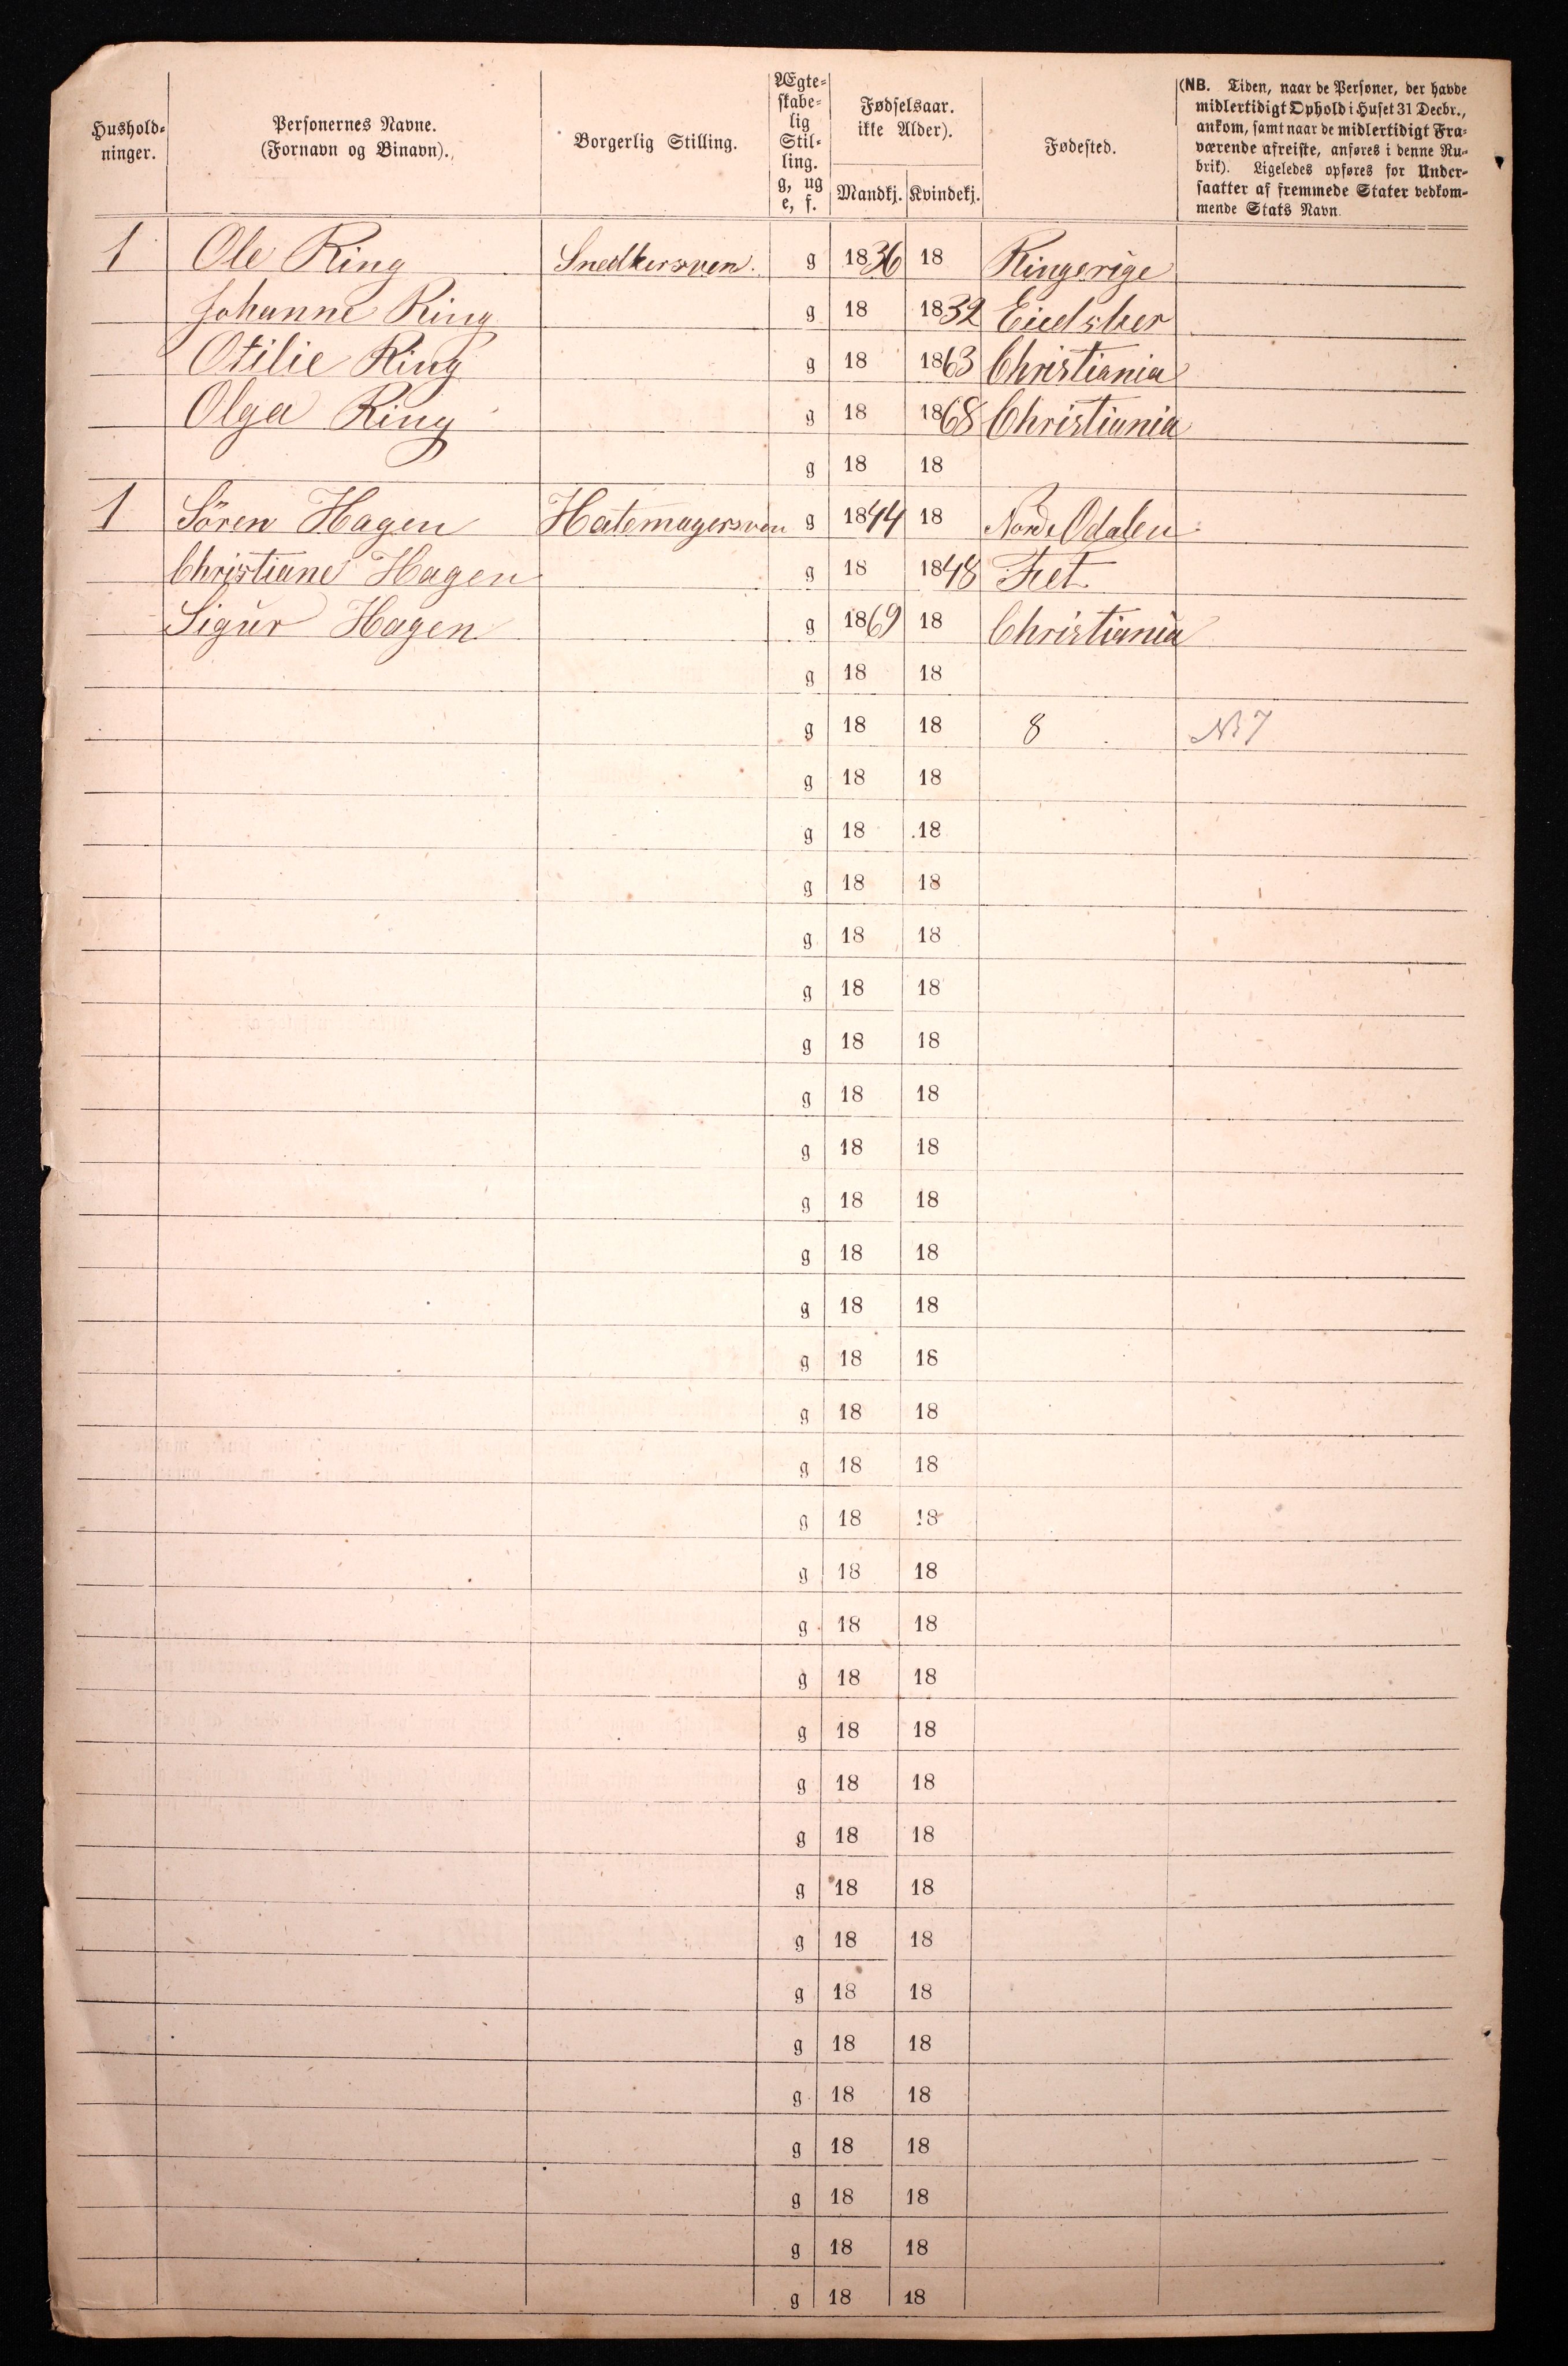 Hushold-
ninger.
Personernes Navne.
(Fornavn og Binavn).
Borgerlig Stilling.
Ægte-
skabe-
lig
Stil-
ling.
g, ug
e, f.
Fødselsaar.
ikke Alder).
Mandkj. Kvindekj.
Fødested.
(NB. Tiden, naar de Personer, der havde
midlertidigt Ophold i Huset 31 Decbr.,
ankom, samt naar de midlertidigt Fra-
værende afreiste, anføres i denne Ru-
brik). Ligeledes opføres for Under-
saatter af fremmede Stater vedkom-
mende Stats Navn.
1 Ole Ring Snedkersven. g 1836 18 Ringerige
Johanne Ring g 18 1832 Eidsker
Otilie Ring g 18 1863 Christiania
Olga Ring g 18 1868 Christiania
g 18 18
1 Sören Hagen Hatemagersven g 1844 18 Nordr Odalen
Christiane Hagen g 18 1848 Fet
Sigur Hagen g 1869 18 Christiania
g 18 18
g 18 18 8 Nr 7
g 18 18
g 18 18
g 18 18
g 18 18
g 18 18
g 18 18
g 18 18
g 18 18
g 18 18
g 18 18
g 18 18
g 18 18
g 18 18
g 18 18
g 18 18
g 18 18
g 18 18
g 18 18
g 18 18
g 18 18
g 18 18
g 18 18
g 18 18
g 18 18
g 18 18
g 18 18
g 18 18
g 18 18
g 18 18
g 18 18